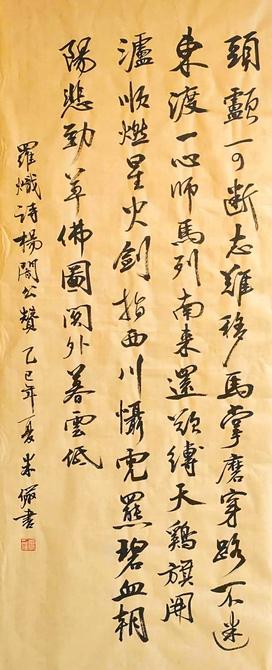 頭顱可斷志難移馬掌磨穿路不迷
東渡一心師馬列南來還欲縛天鷄旗開
瀘順燃星火劍指西川懾虎羆碧血朝
陽悲勁草佛圖關外暮雲低
羅熾詩楊闇公贊乙巳年夏朱儼書